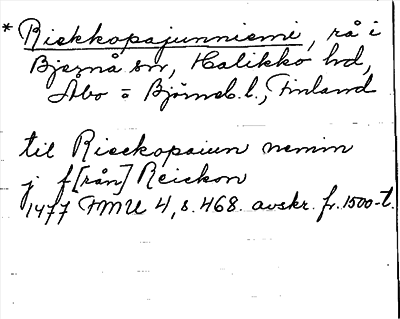 * Riekkopajunniemi, rå i
Bjernå sn, Halikko hd,
Åbo = Björneb. l., Finland
til Rieckopaiun nemin
j f[rån] Reickon
1477 FMU 4, s. 468. avskr. fr. 1500-t.